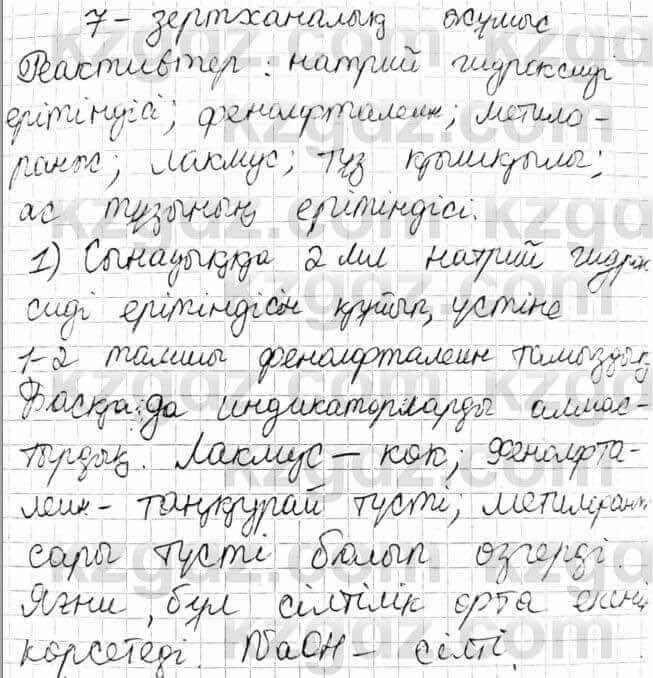 7 – зертханалық жұмыс
Реактивтер : натрий гидроксиді
ерітіндісі; фенолфталеин; метило-
ранж; лакмус; тұз қышқылы;
ас тұзының ерітіндісі.
1) Сынауыққа 2 мл натрий гидрок
сиді ерітіндісін құйып, үстіне
1-2 тамшы фенолфталеин тамыздық
Басқа да индикаторларды алмас-
тырдық. Лакмус – көк; Фенолфта-
леин – таңқурай түсті; метилоранж
сары түсті болып өзгерді.
Яғни, бұл сілтілік орта екенін
көрсетеді. NaOH – сілті.